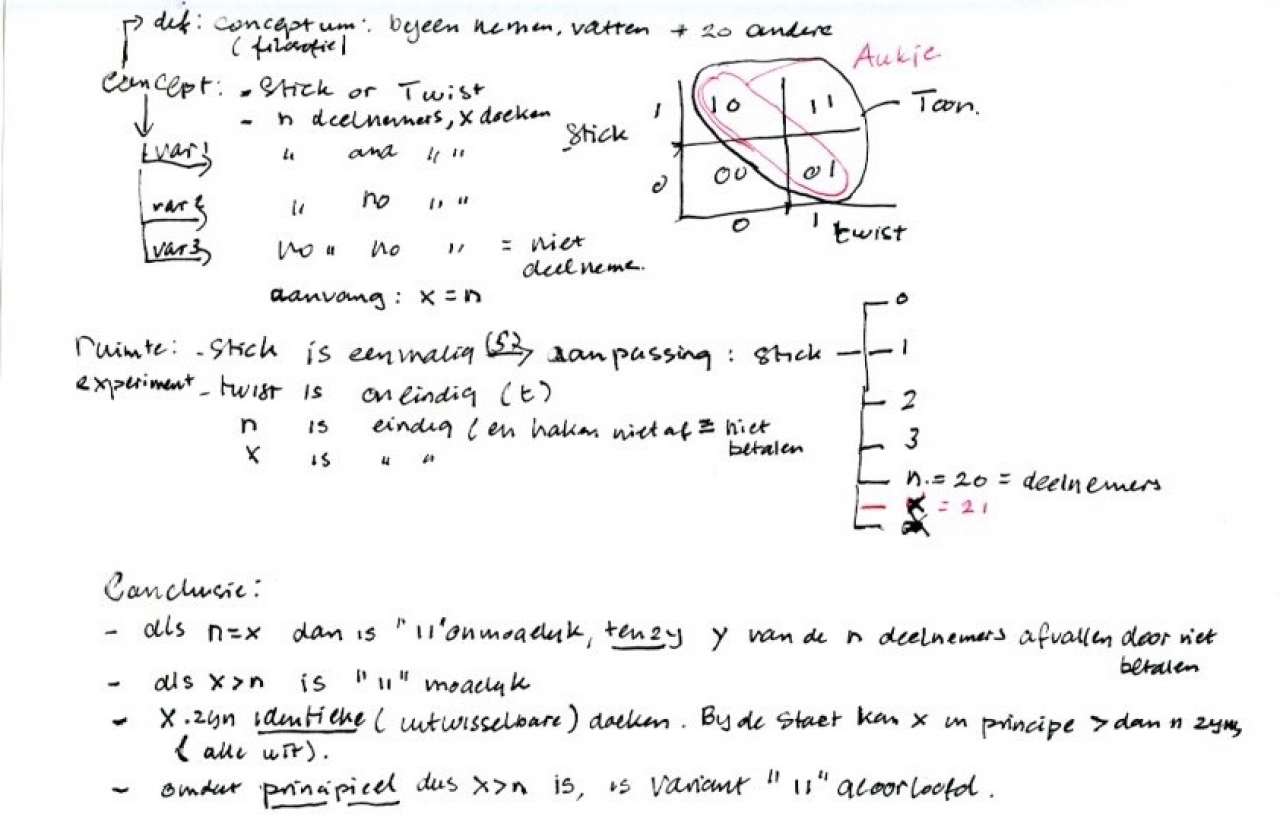 def: conceptum: bijeen nemen, vatten + 20 andere
(filosofie)
Concept: - Stick or Twist
- n deelnemers, x doeken
var1 " and " "
var2 " no " "
var3 no " no " = niet
deelneme.
aanvang: x = n
Aukje
Toon.
Stick
1 10 11
0 00 01
0 1 twist
ruimte: - Stick is eenmalig (S) aanpassing: stick
experiment - twist is oneindig (t)
n is eindig (en haken niet af = niet
betalen
x is " "
0
1
2
3
n = 20 = deelnemers
x = 21
Conclusie:
- als n=x dan is "11" onmogelijk, tenzij y van de n deelnemers afvallen door niet
betalen
- als x>n is "11" mogelijk
- X zijn identieke (uitwisselbare) doeken. Bij de start kan x in principe > dan n zijn,
(alle wit).
- omdat principieel dus x>n is, is variant "11" geoorloofd.